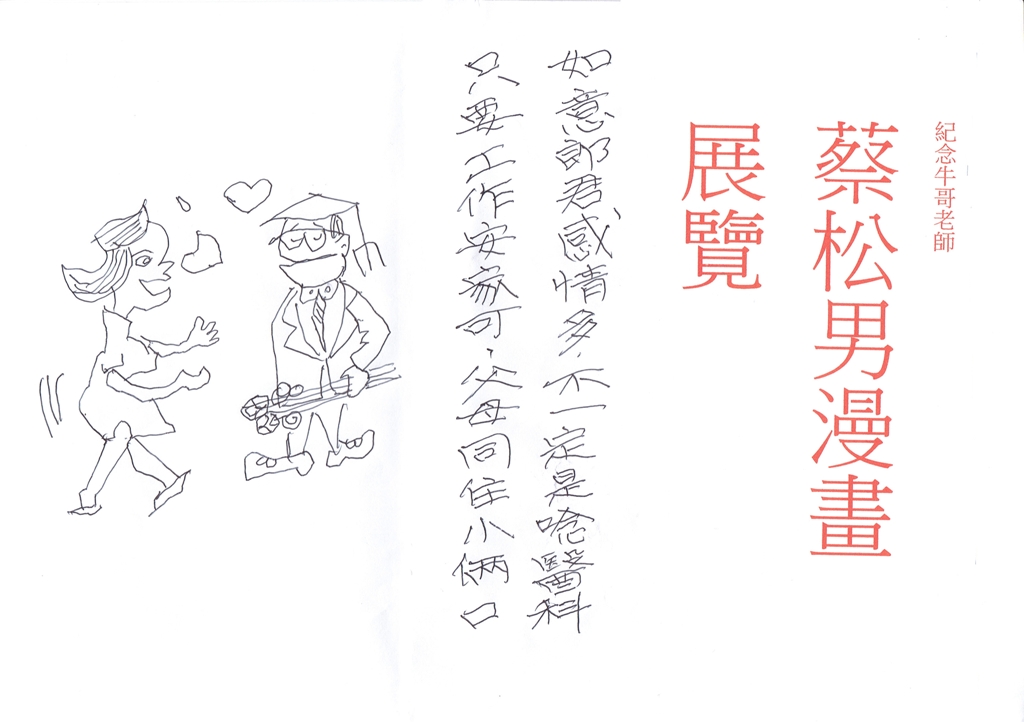 紀念牛哥老師
蔡松男漫畫
展覽
如意郎君感情多，不一定是唸醫科
只要工作安家可，父母同住小倆口